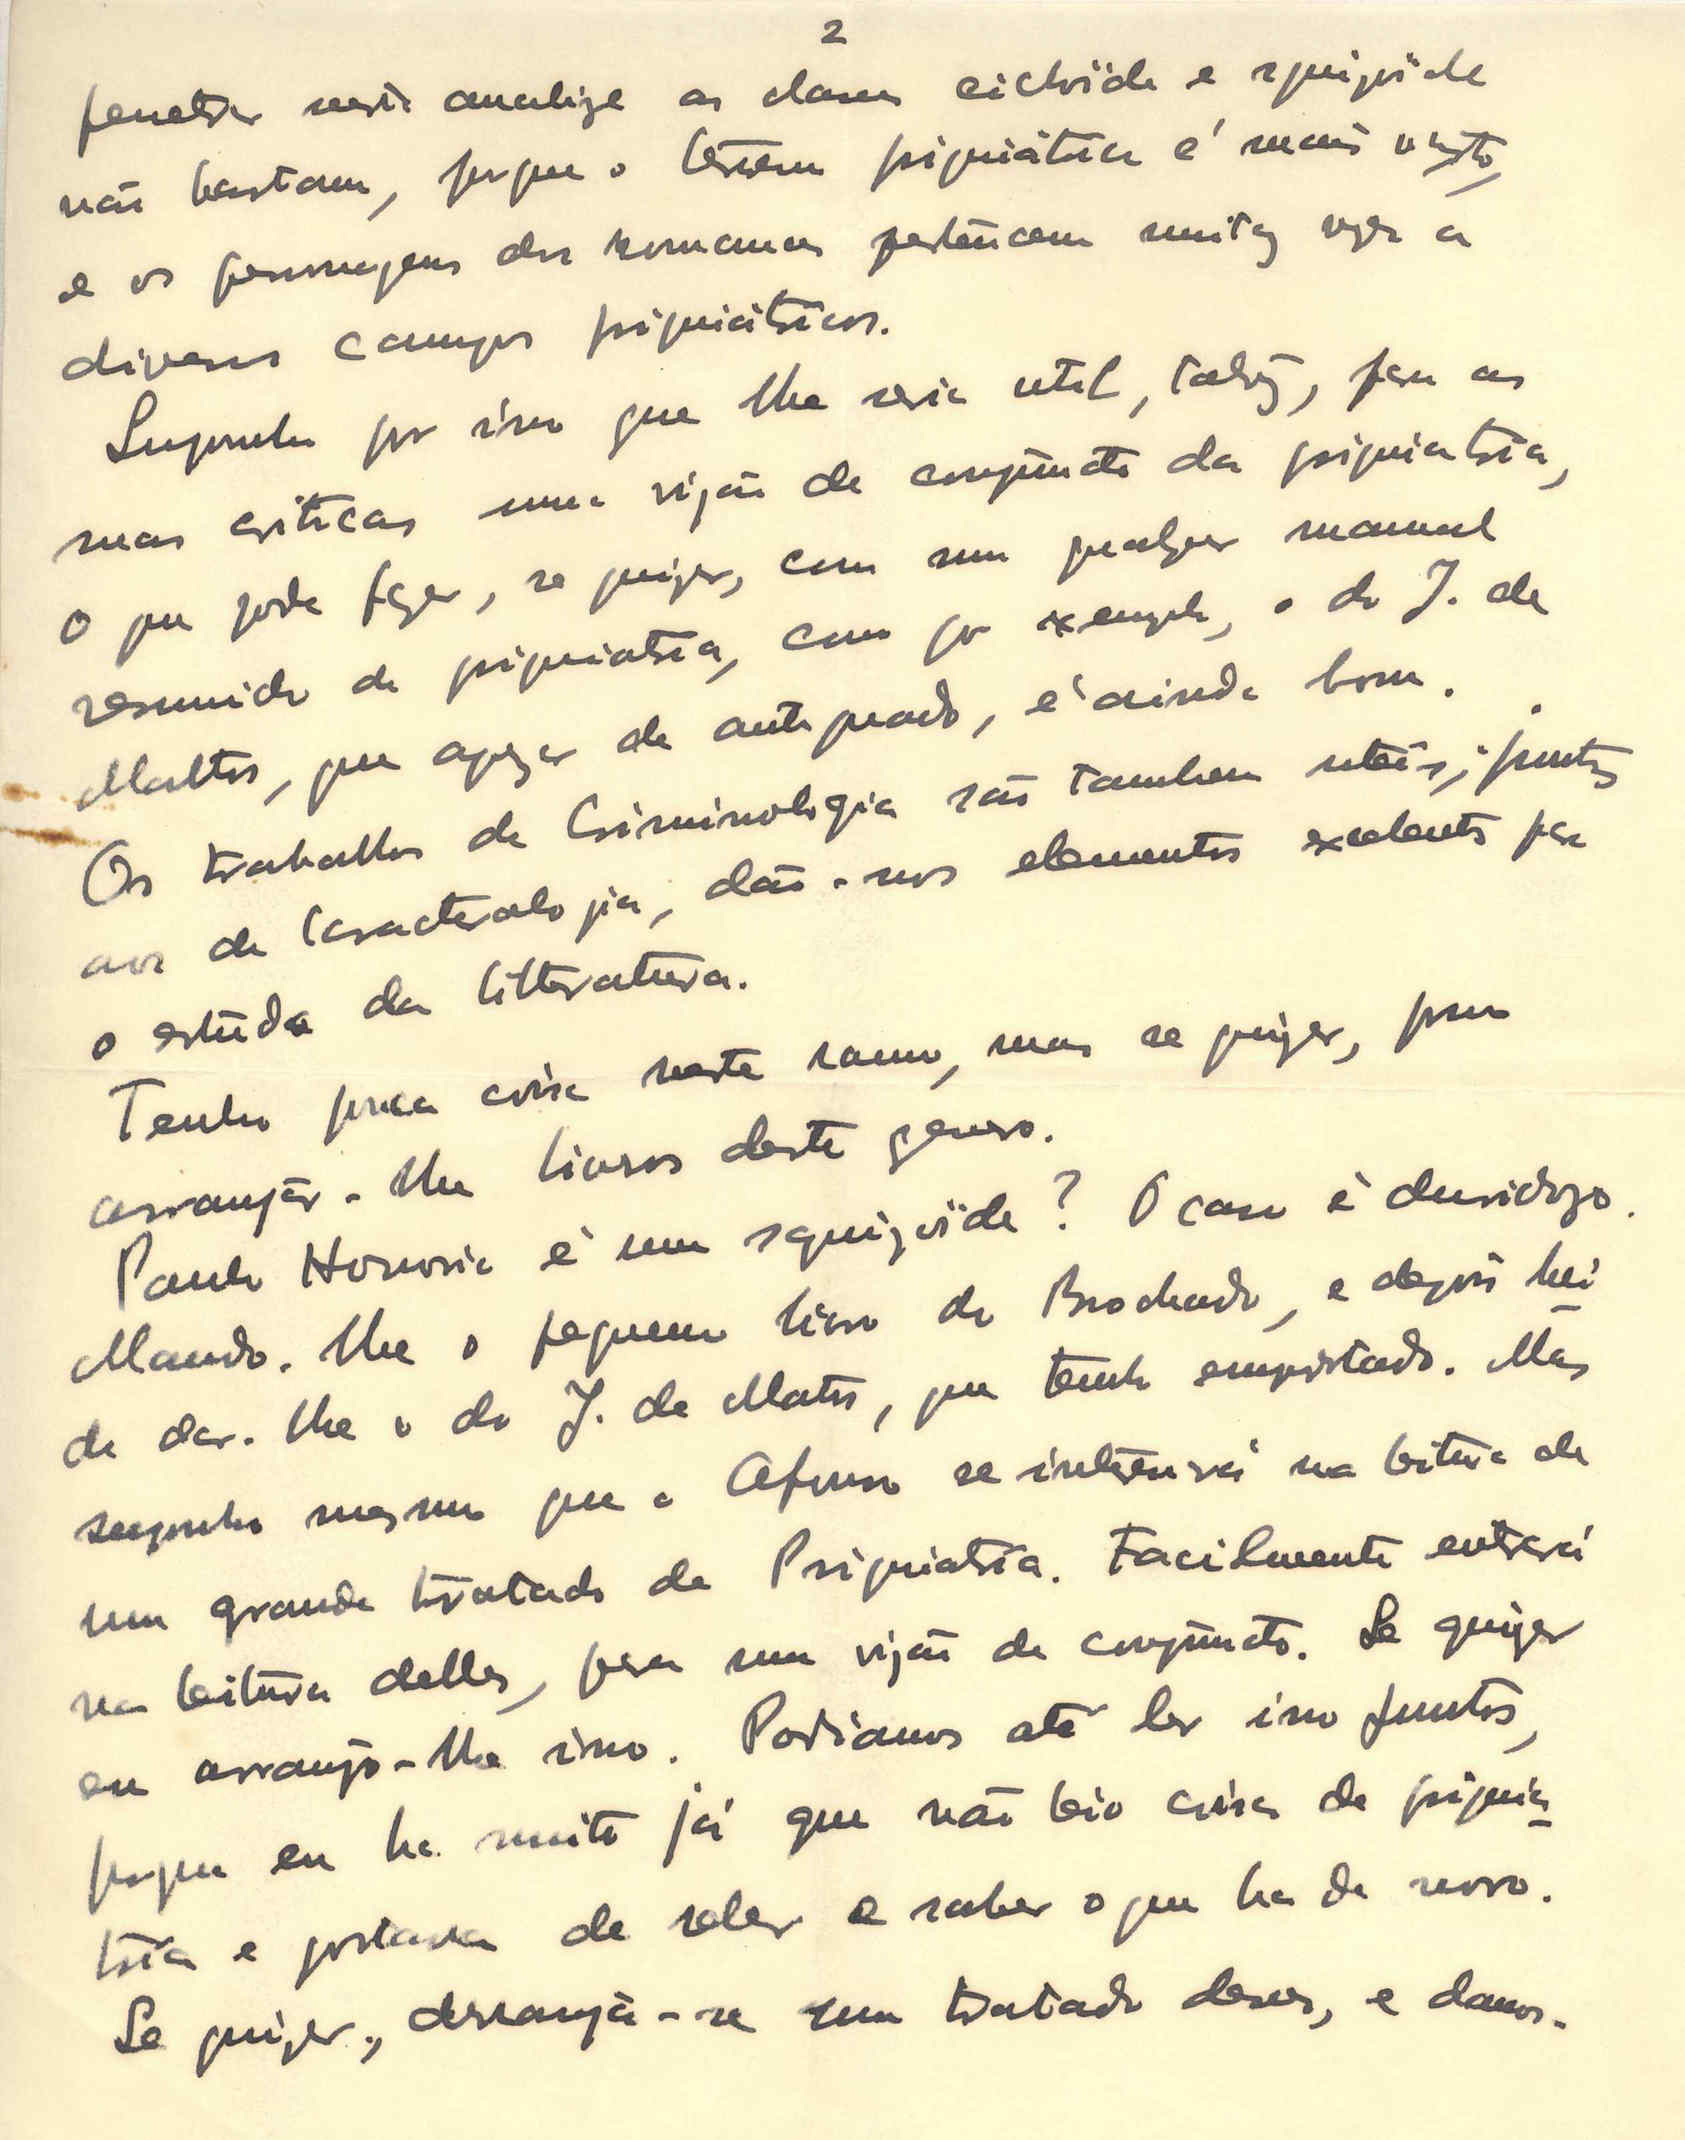 2
penetrar nesta analize as clases cicloide e squizoide
não bastam, porque o terreno psiquiátrico é mais vasto,
e os personagens dos romances pertencem muitas vezes a
diversos campos psiquiátricos.
Suponho por isso que lhe seria util, talvez, para as
suas criticas uma vizão de conjuncto da psiquiatria,
o que pode fazer, se quizer, com um qualquer manual
resumido de psiquiatria, como por exemplo, o do J. de
Mattos, que apezar de antiquado, é ainda bom.
Os trabalhos de Criminologia são tambem uteis; juntos
aos de Caracterologia, dão-nos elementos excelentes para
o estudo da litteratura.
Tenho pouca coisa neste ramo, mas se quizer, posso
arranjar-lhe livros deste genero.
Paulo Honorio é um squizoide? O caso é duvidozo.
Mando-lhe o pequeno livro do Brochado, e depois hei
de dar-lhe o do J. de Matos, que tenho emprestado. Mas
suponho mesmo que o Afonso se interessará na leitura de
um grande tratado de Psiquiatria. Facilmente entrará
na leitura delles, para uma vizão de conjuncto. Se quizer
eu arranjo-lhe isso. Podiamos até ler isso juntos,
porque eu ha muito já que não leio coisas de psiquia-
tria e gostava de reler e saber o que ha de novo.
Se quizer, arranja-se um tratado desses, e damos-